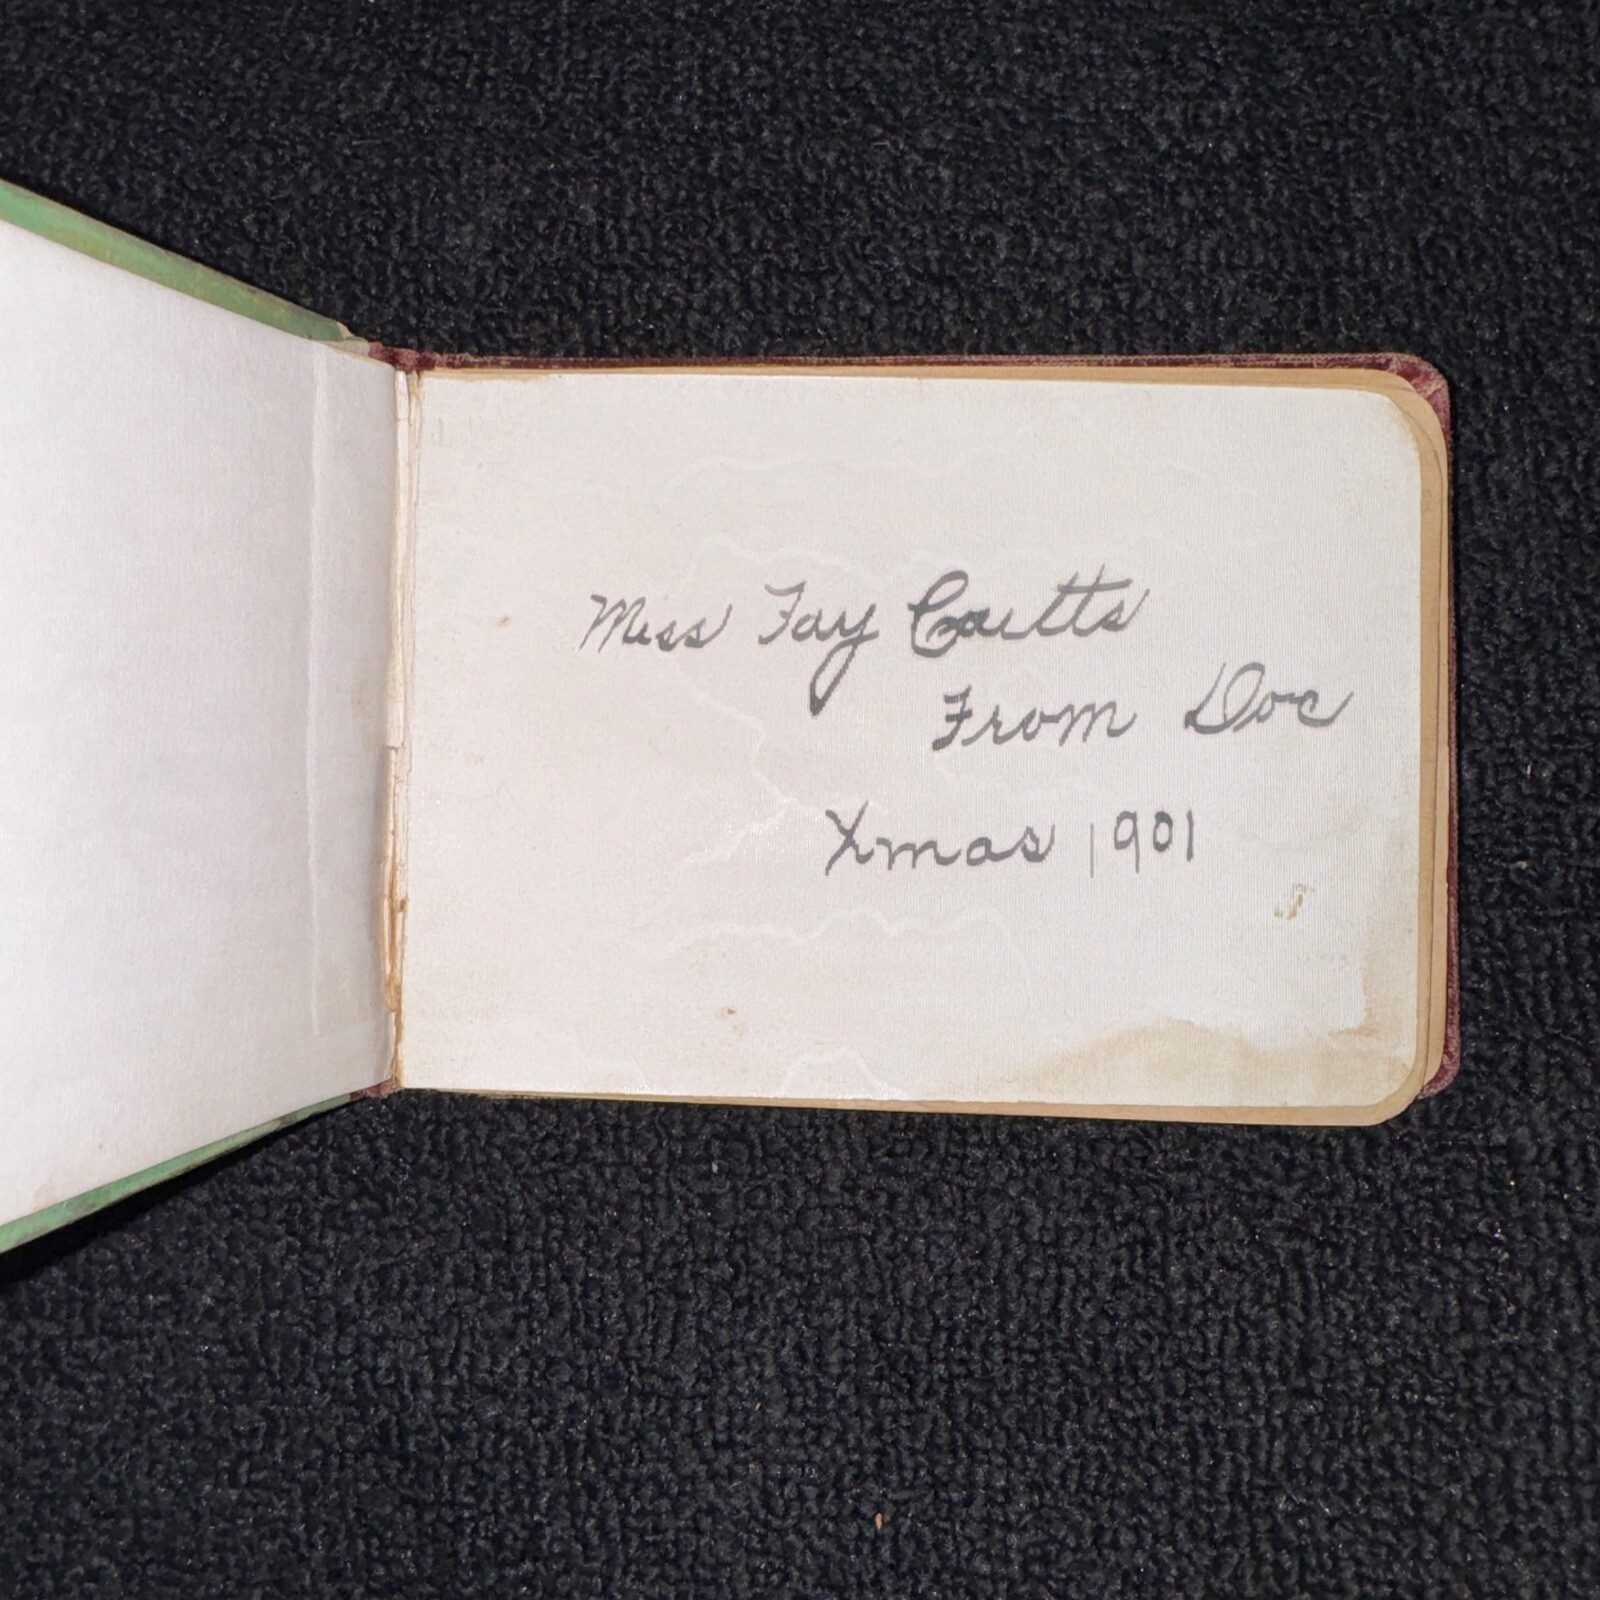 Miss Fay Coutts
From Doc
Xmas 1901